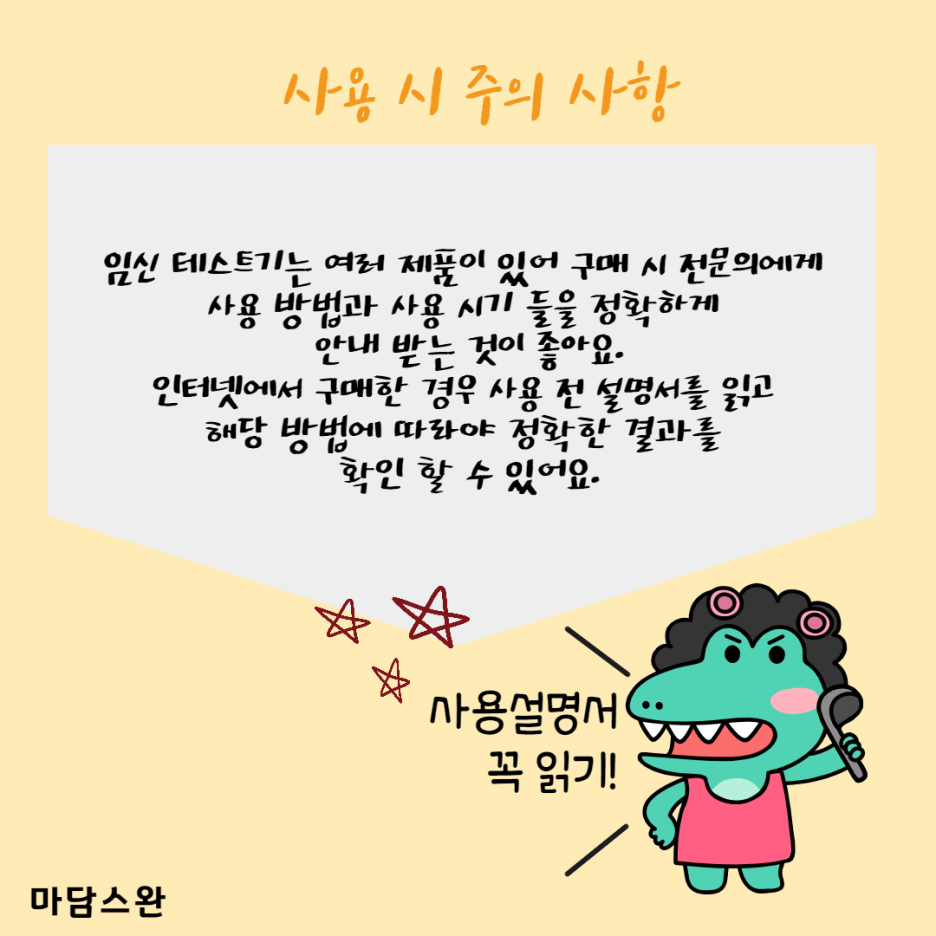 사용 시 주의 사항
임신 테스트기는 여러 제품이 있어 구매 시 전문의에게
사용 방법과 사용 시기 들을 정확하게
안내 받는 것이 좋아요.
인터넷에서 구매한 경우 사용 전 설명서를 읽고
해당 방법에 따라야 정확한 결과를
확인 할 수 있어요.
사용설명서
꼭 읽기!
마담스완